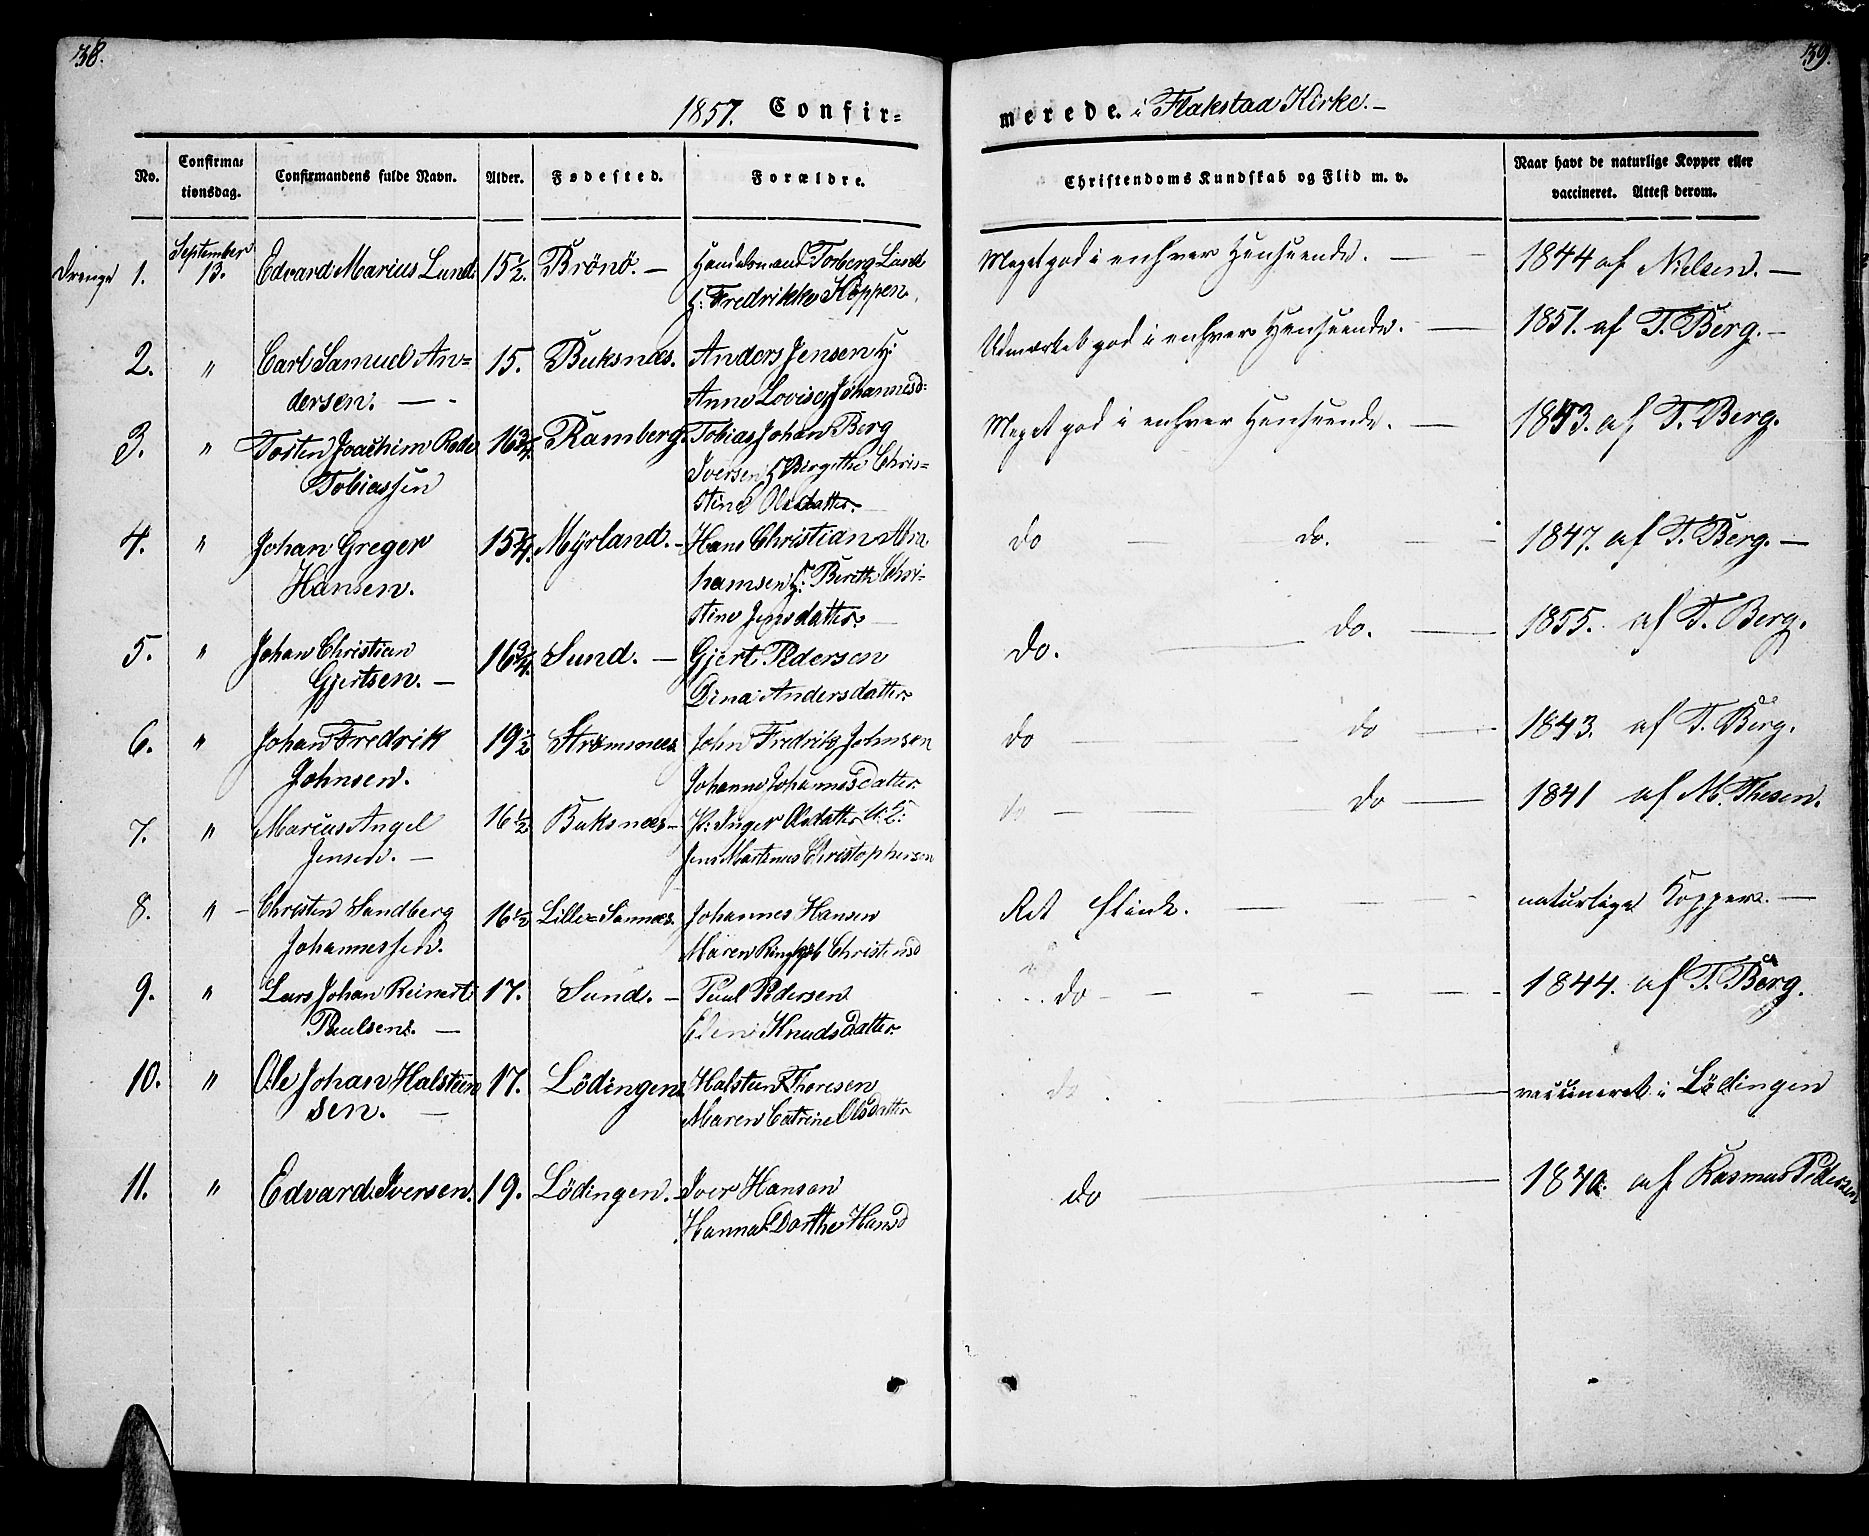 38.
39.
1857. Confir=
merede. i Flakstad Kirke.-
No.
Confirma=
tionsdag.
Confirmandens fulde Navn.
Alder.
Fødested.
Forældre.
Christendoms Kundskab og Flid m. v.
Naar havt de naturlige Kopper eller
vaccineret. Attest derom.
Drenge 1. September 13. Edvard Marius Lund 15½. Brönö. – Handelsmand Torberg Lund
H: Fredrikke Hoppen.
Meget god i enhver Henseende. – 1844 af Nielsen. –
2. " Carl Samuel An=
dersen. –
15. Buksnæs. Anders Jensen H:
Anne Lovise Johannesd:
Udmærket god i enhver Henseende. – 1851. af T. Berg. –
3. " Torsten Joachim Rode
Tobiassen
16¾. Ramberg. Tobias Johan Berg
Iversen H: Birgithe Chris=
stine Olsdatter.
Meget god i enhver Henseende. – 1843. af T. Berg.
4. " Johan Greger
Hansen.
15¾. Myrland. – Hans Christian Abra
hamsen H: Berith Chri-
stine Jensdatter.
do – do. – 1847. af T. Berg. –
5. " Johan Christian
Gjertsen. –
16¾. Sund. – Gjert Pedersen
Dina Andersdatter
do. – do. – 1855. af T. Berg.
6. " Johan Fredrik
Johnsen.
19½ Strømsnæs John Fredrik Johnsen
Johanne Johannesdatter
do – do – 1843. af T. Berg.
7. " Marius Angel
Jensen. –
16½ Buksnæs – P: Inger Olsdatter U: E:
Jens Martinus Christophersen
do – do – 1841 af M. Thesen.
8. " – Christen Sandberg
Johannessen.
16½ Lille=Sannæs. Johannes Hansen
Maren Christensd
Ret flink. – naturlige Kopper. –
9. " Lars Johan Reinert
Paulsen. –
17. Sund. – Paul Pedersen
Elen Knudsdatter
do – 1844. af T. Berg.
10. " Ole Johan Halsteen
sen. –
17. Lödingen Halsteen Thoresen
Maren Catrine Olsdatter
do – vaccineret i Lödingen
11. " Edvard Iversen. 19. Lödingen. Iver Hansen
Hanna Dorthe Hansd
do – 1840. af Rasmus Pedersen